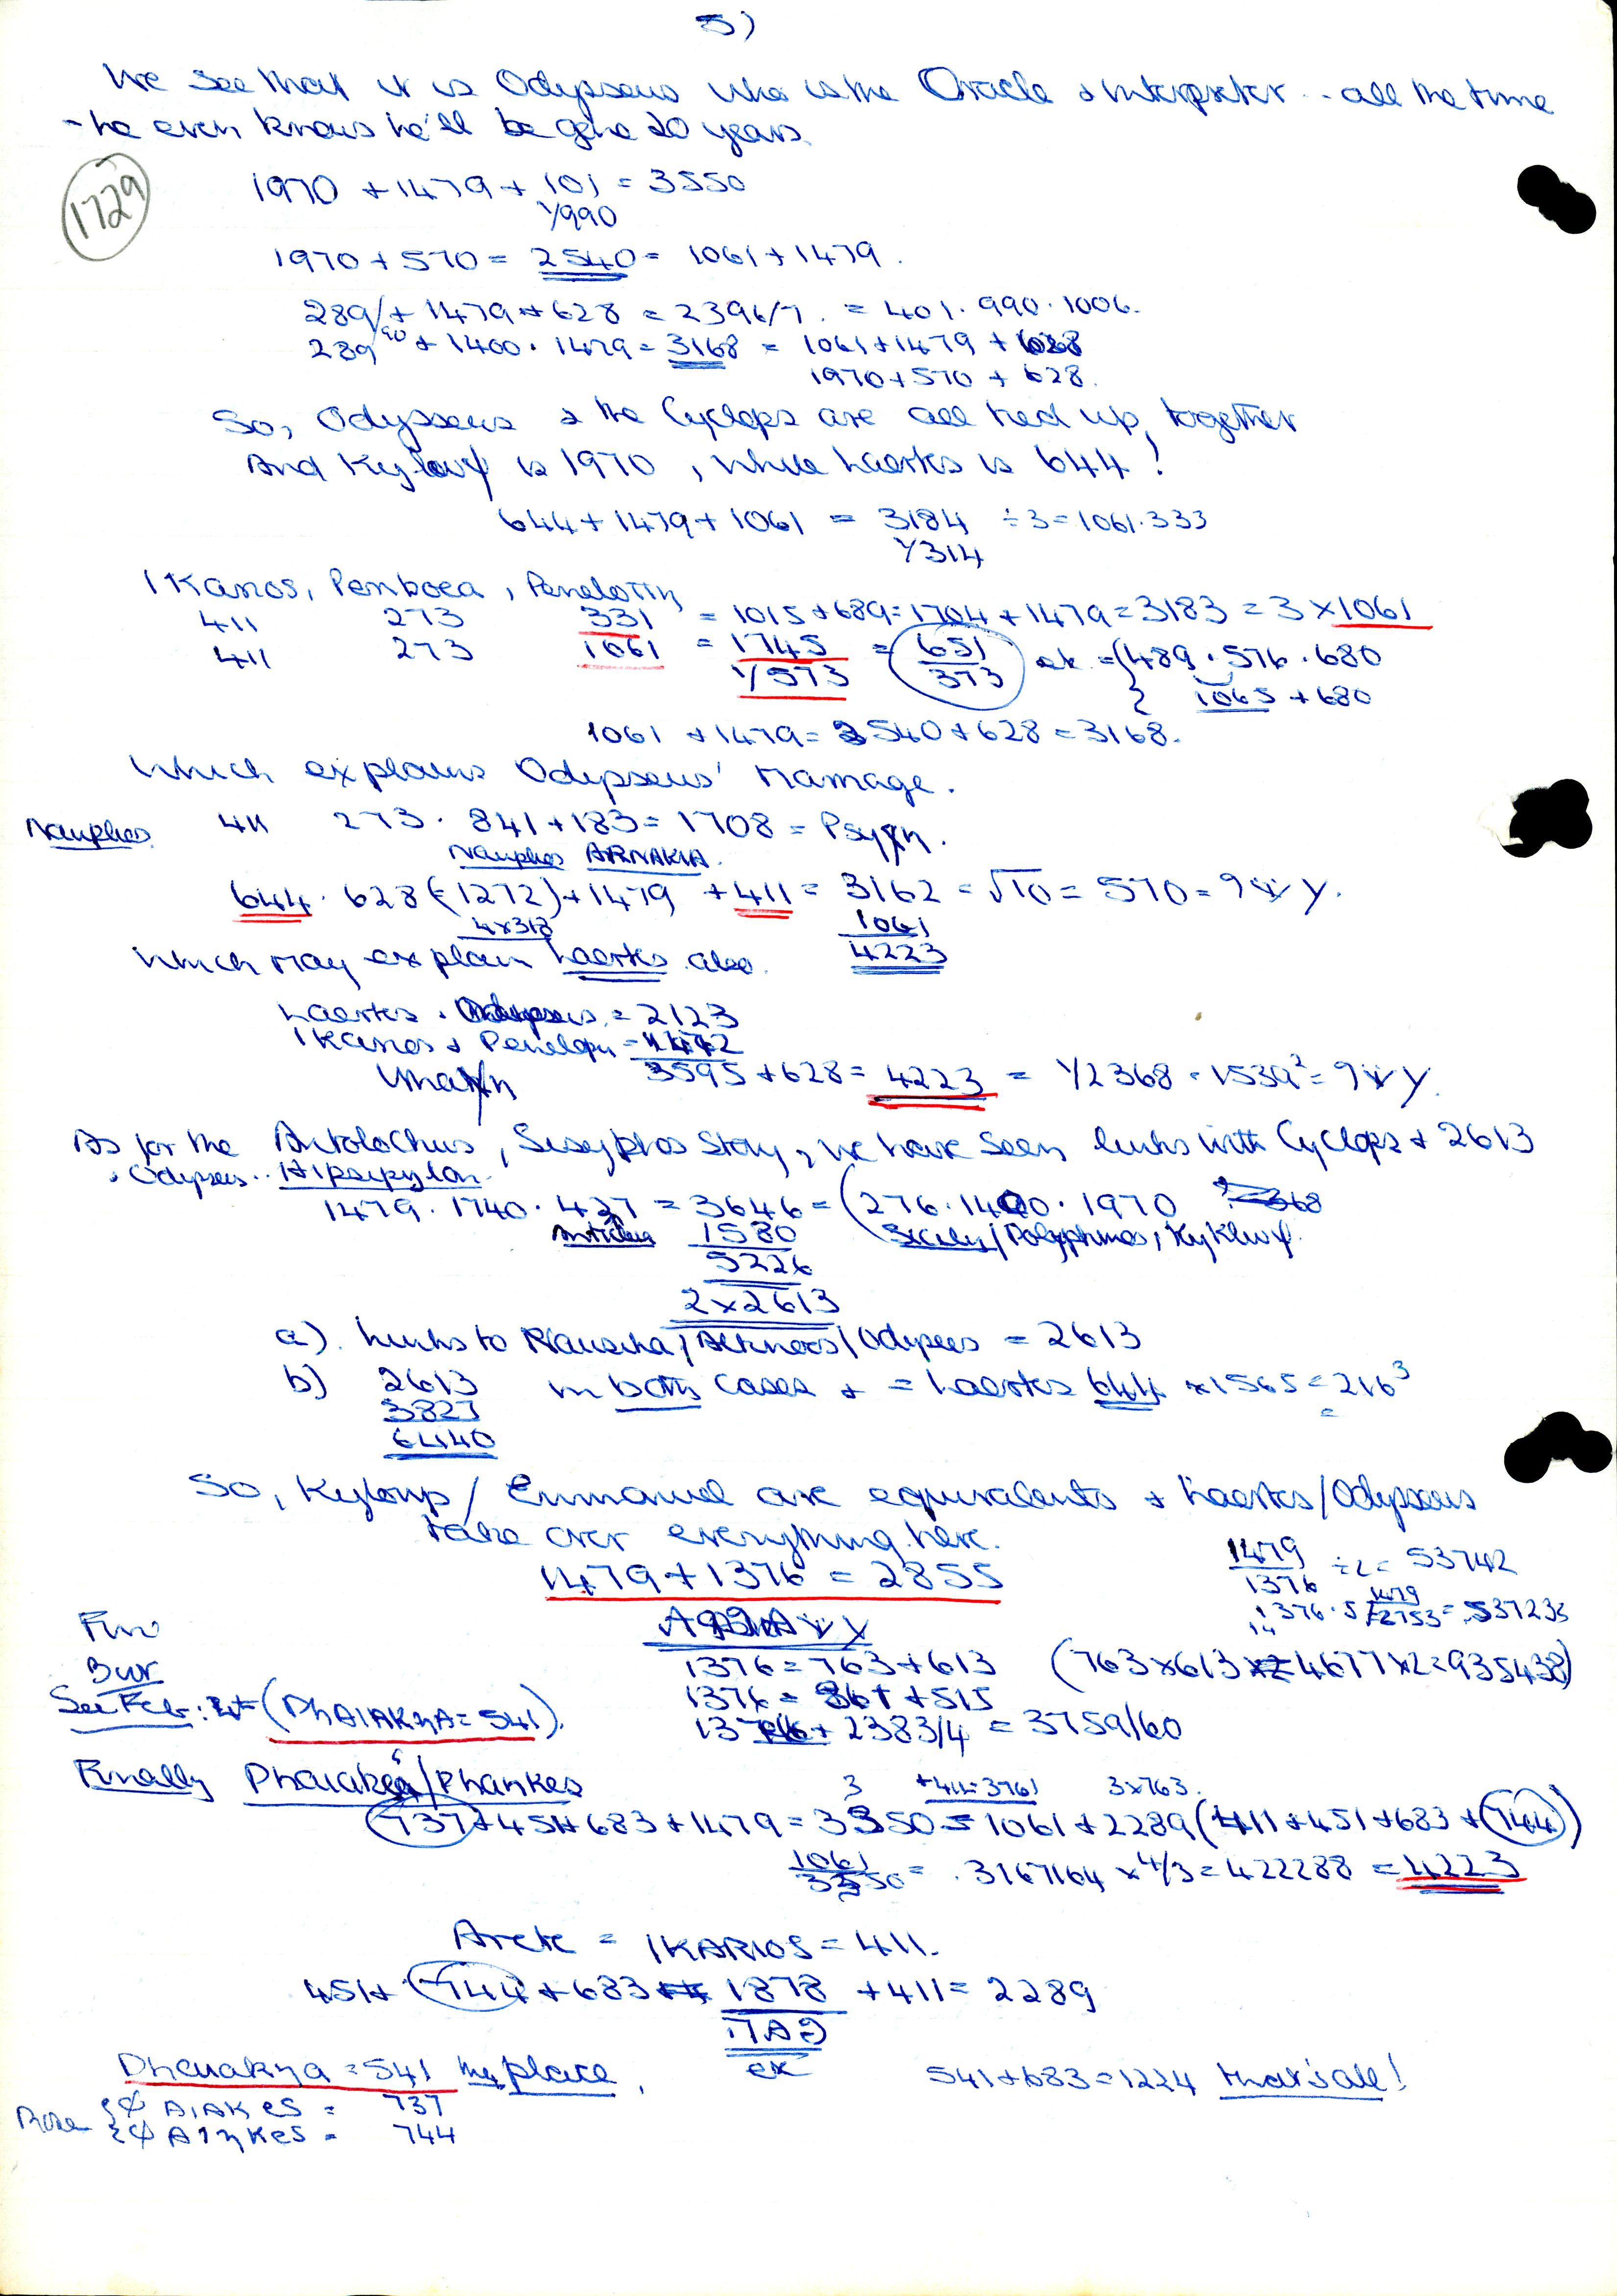 5)
We see that it is Odysseus who is the Oracle & Interpreter .. all the time
- he even knows he'll be gone 20 years.
1729
1970 + 1479 + 101 = 3550
1/990
1970 + 570 = 2540 = 1061 + 1479.
289/ + 1479 + 628 = 2396/7. = 401. 990. 1006.
289 90 + 1400. 1479 = 3168 = 1061 + 1479 + 628
1970 + 570 + 628.
So, Odysseus & the Cyclops are all tied up, together
And is 1970, while Laertes is 644!
644 + 1479 + 1061 = 3184 ÷ 3 = 1061.333
1/314
Ikarios, Periboea, Penelopη
411 273 331 = 1015 + 689 = 1704 + 1479 = 3183 = 3 × 1061
411 273 1061 = 1745 = 651 = (489. 576. 680
1/573 373 1065 + 680
1061 + 1479 = 2540 + 628 = 3168.
Which explains Odysseus' Marriage.
Nauplios 411 273. 841 + 183 = 1708 = Psyχη.
Nauplios ARNAKIA.
644. 628 (= 1272) + 1479 + 411 = 3162 = √10 = 570 =
4x318 1061
4223
Which may explain Laertes also.
Laertes. Odysseus = 2123
Ikarios + Penelopη = 1472
3595 + 628 = 4223 = 1/2368 .
As for the Antolochus, Sisyphos story, we have seen links with Cyclops & 2613
& Odysseus.. Hipsipylon
1479. 1740. 427 = 3646 = (276. 1400. 1970
Anticlea 1580 Sicily/Polyphmos,
5226
2 × 2613
a). Links to Nausicaa/Alkinoos/Odysseus = 2613
b) 2613 in both cases & = Laertes 644 × 1565 = 216³
3827
6440
So, / Emmanuel are equivalents & Laertes/Odysseus
take over everything here.
1479 + 1376 = 2855
1479 ÷ 2 = 53742
1376
1479
1376. 5/2753 = .537235
1376 = 763 + 613 (763 × 613 = 4677 × 2 = 935438)
1376 = 861 + 515
See Feb: (PhAIAKηA = 541).
1376 + 2383/4 = 3759/60
Finally Phaiakes/Phaiηkes
3 +411=3761 3×763.
737 + 451 + 683 + 1479 = 3350 = 1061 + 2289 (411 + 451 + 683 + 744)
1061 = .3167164 × 4/3 = 422288 = 4223
3350
Arete = IKARIOS = 411.
451 + 744 + 683 = 1878 + 411 = 2289
Phaiakηa = 541 the place, 541 + 683 = 1224 that's all!
φ AIAKes = 737
φ AIηKes = 744